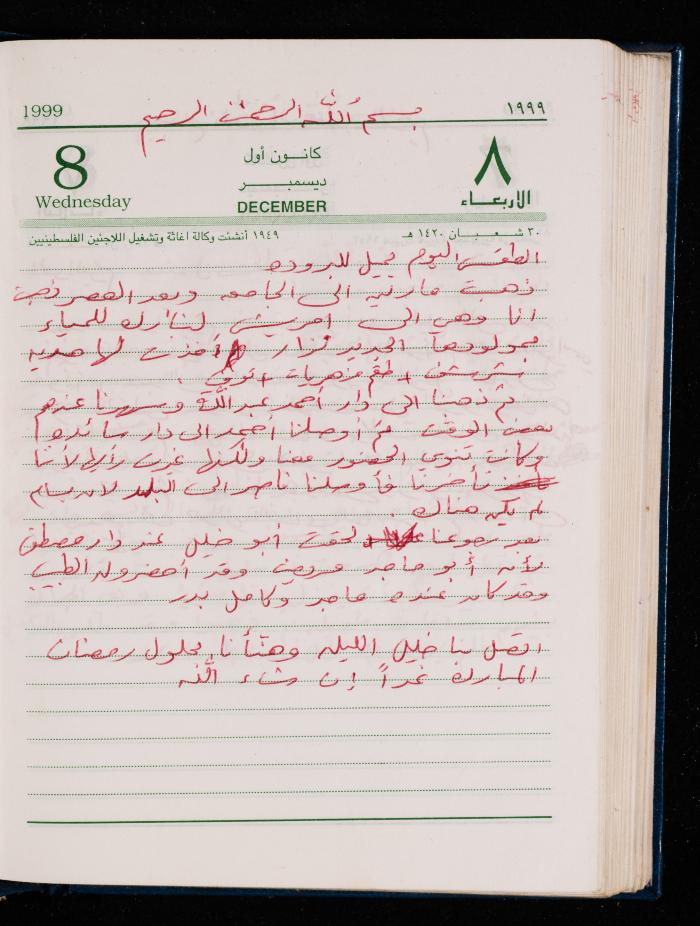 بسم الله الرحمن الرحيم
1999 ١٩٩٩
8 كانون أول ٨
Wednesday ديسمبر الاربعاء
DECEMBER
٣٠ شعبان ١٤٢٠ هـ ١٩٤٩ أنشئت وكالة اغاثة وتشغيل اللاجئين الفلسطينيين
الطقس اليوم يميل للبروده
ذهبت مارتيه الى الجامعه وبعد العصر ذهبت
انا وهي الى لنبارك للمياء
بمولودها الجديد نزار أخذت لها هديه
بشرشف + طقم مزهريات
ثم ذهبنا الى دار أحمد عبد الله وسهرنا عندهم
بعض الوقت ثم أوصلنا أمجد الى دار سائده
وكانت تنوي الحضور معنا ولكنها غيرت رأيها لأننا
تأخرنا فأوصلنا ناصر الى البلد لان بسام
لم يكن هناك .
بعد رجوعنا لحقت أبو خليل عند دار مصطفى
لأن أبو ماجد مريض وقد أحضروا له الطبيب
وقد كان عنده ماجد وكامل بدر
اتصل بنا خليل الليله وهنّأنا بحلول رمضان
المبارك غداً إن شاء الله